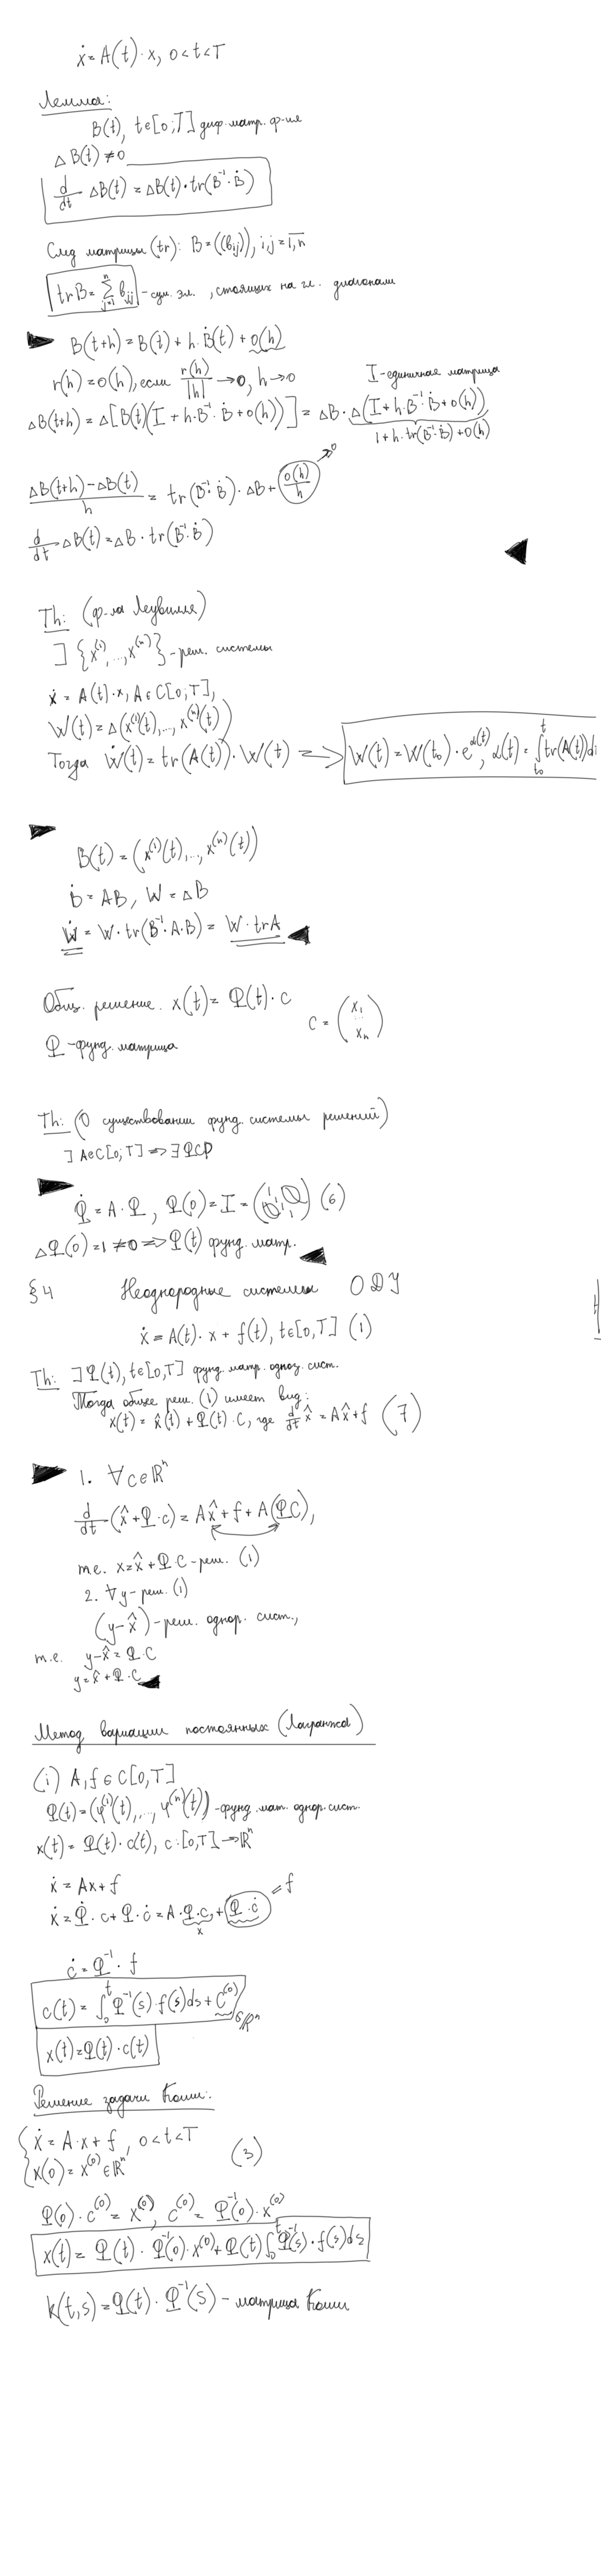 ẋ = A(t)·x, 0<t<T
Лемма:
B(t), t∈[0;T] диф. матр. ф-ия
△B(t)≠0
d/dt △B(t) = △B(t)·tr(B⁻¹·Ḃ)
След матрицы (tr): B=((bij)), i,j=1,n
trB = ∑ⁿⱼ₌₁ bjj - сум. эл., стоящих на гл. диагонали
B(t+h) = B(t) + h·Ḃ(t) + o(h)
r(h) = o(h), если r(h)/|h| → 0, h→0
I-единичная матрица
△B(t+h) = △[B(t)(I + h·B⁻¹·Ḃ + o(h))] = △B·△(I + h·B⁻¹·Ḃ + o(h))
1 + h·tr(B⁻¹·Ḃ) + o(h)
(△B(t+h) - △B(t))/h = tr(B⁻¹·Ḃ)·△B + o(h)/h → 0
d/dt △B(t) = △B·tr(B⁻¹·Ḃ)
Th: (ф-ла Леувилля)
∃ {x⁽¹⁾, ..., x⁽ⁿ⁾} - реш. системы
ẋ = A(t)·x, A∈C[0;T],
W(t) = △(x⁽¹⁾(t), ..., x⁽ⁿ⁾(t))
Тогда Ẇ(t) = tr(A(t))·W(t) => W(t) = W(t₀)·e^α(t), α(t) = ∫ₜ₀ᵗ tr(A(t))d
B(t) = (x⁽¹⁾(t), ..., x⁽ⁿ⁾(t))
Ḃ = AB, W = △B
Ẇ = W·tr(B⁻¹·A·B) = W·trA
Общ. решение. x(t) = Φ(t)·c
c = (x₁ ... xₙ)
Φ - фунд. матрица
Th: (О существовании фунд. системы решений)
∃ A∈C[0;T] => ∃ ФСР
Φ̇ = A·Φ, Φ(0) = I = (1 0 1 0 1) (6)
△Φ(0) = 1 ≠ 0 => Φ(t) фунд. матр.
§4 Неоднородные системы ОДУ
ẋ = A(t)·x + f(t), t∈[0,T] (1)
Th: ∃ Φ(t), t∈[0,T] фунд. матр. одноз. сист.
Тогда общее реш. (1) имеет вид:
x(t) = x̂(t) + Φ(t)·C, где d/dt x̂ = Ax̂ + f (7)
1. ∀ c∈ℝⁿ
d/dt (x̂ + Φ·c) = Ax̂ + f + A(ΦC),
т.е. x = x̂ + ΦC - реш. (1)
2. ∀ y - реш. (1)
(y - x̂) - реш. однор. сист.,
т.е. y - x̂ = Φ·C
y = x̂ + Φ·C
Метод вариации постоянных (Лагранжа)
(i) A, f ∈ C[0,T]
Φ(t) = (φ⁽¹⁾(t), ..., φ⁽ⁿ⁾(t)) - фунд. мат. однор. сист.
x(t) = Φ(t)·c(t), c: [0,T] → ℝⁿ
ẋ = Ax + f
ẋ = Φ̇·c + Φ·ċ = A·Φ·c + Φ·ċ = f
x
ċ = Φ⁻¹·f
c(t) = ∫₀ᵗ Φ⁻¹(s)·f(s)ds + C⁽⁰⁾ ∈ℝⁿ
x(t) = Φ(t)·c(t)
Решение задачи Коши:
{ ẋ = A·x + f, 0<t<T
x(0) = x⁽⁰⁾ ∈ℝⁿ (3)
Φ(0)·c⁽⁰⁾ = x⁽⁰⁾, c⁽⁰⁾ = Φ⁻¹(0)·x⁽⁰⁾
x(t) = Φ(t)·Φ⁻¹(0)·x⁽⁰⁾ + Φ(t)∫₀ᵗ Φ⁻¹(s)·f(s)ds
k(t,s) = Φ(t)·Φ⁻¹(s) - матрица Коши